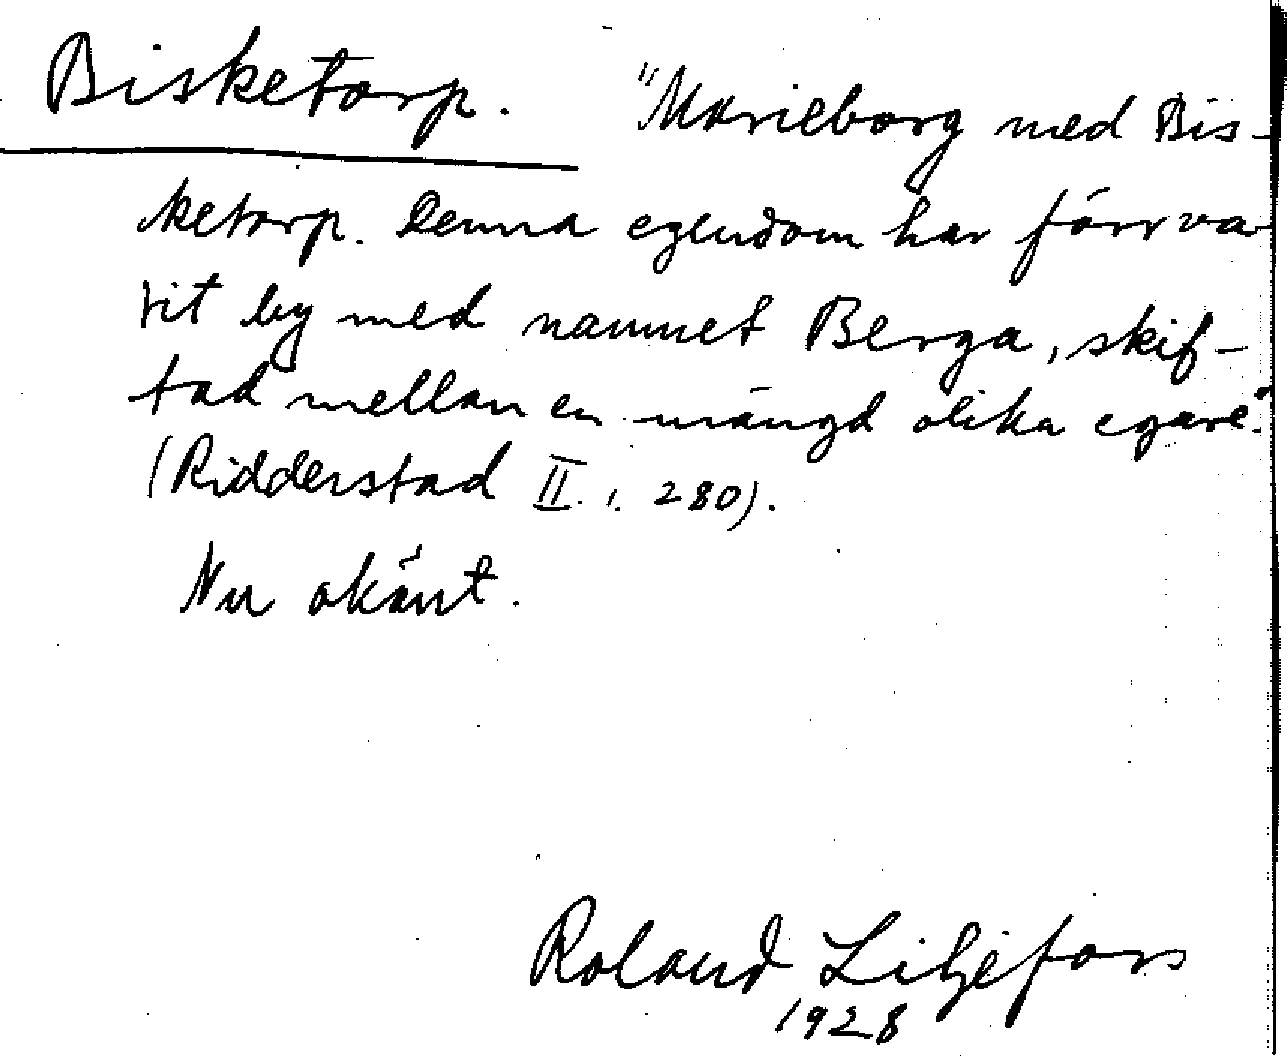 Bisketorp. "Marieborg med Bis-
ketorp. Denna egendom har förr va
rit by med namnet Berga, skif-
tad mellan en mängd olika egare."
(Ridderstad II. 1. 280).
Nu okänt.
Roland Liljefors
1928